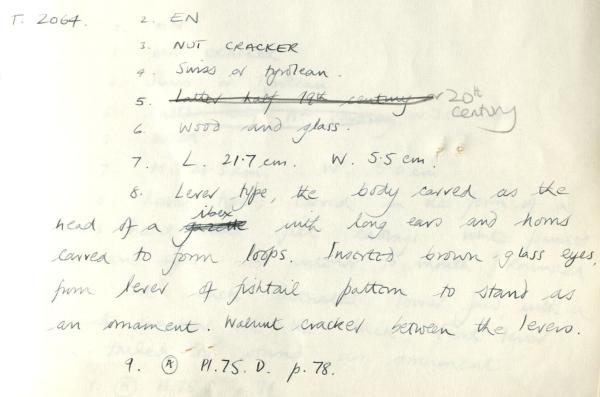 T. 2064. 2. EN
3. NUT CRACKER
4. Swiss or tyrolean.
5. Latter half 19th century or 20th century
6. Wood and glass.
7. L. 21.7 cm. W. 5.5 cm.
8. Lever type, the body carved as the
ibex
head of a gazelle with long ears and horns
carved to form loops. Inserted brown glass eyes,
from lever of fishtail pattern to stand as
an ornament. Walnut cracker between the levers.
9. A Pl. 75. D. p. 78.